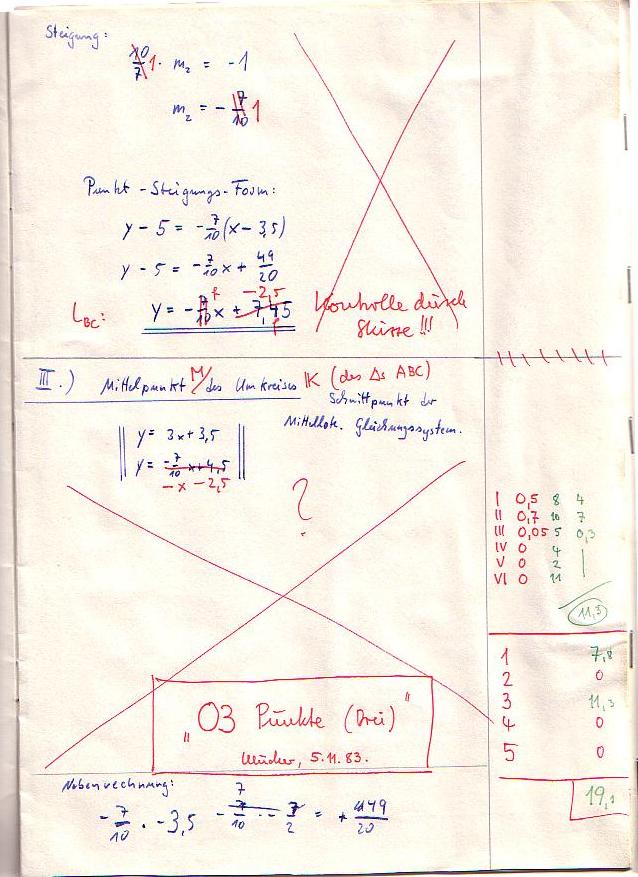 Steigung:
10/7 1 · m₂ = -1
m₂ = - 7/10 1
Punkt-Steigungs-Form:
y - 5 = -7/10 (x - 3,5)
y - 5 = -7/10 x + 49/20
-2,5
L_BC: y = -7/10 x + 7,45
Kontrolle durch
Skizze !!!
III.) Mittelpunkt M/des Umkreises K (des Δs ABC)
Schnittpunkt der
Mittellote. Gleichungssystem.
y = 3x + 3,5
y = -7/10 x + 4,5
-x -2,5
?
I 0,5 8 4
II 0,7 10 7
III 0,05 5 0,3
IV 0 4
V 0 2
VI 0 11
11,3
1 7,8
2 0
3 11,3
4 0
5 0
19,1
„03 Punkte (Drei)"
5.11.83.
Nebenrechnung:
7
-7/10 · -3,5 -7/10 · -7/2 = + 49/20